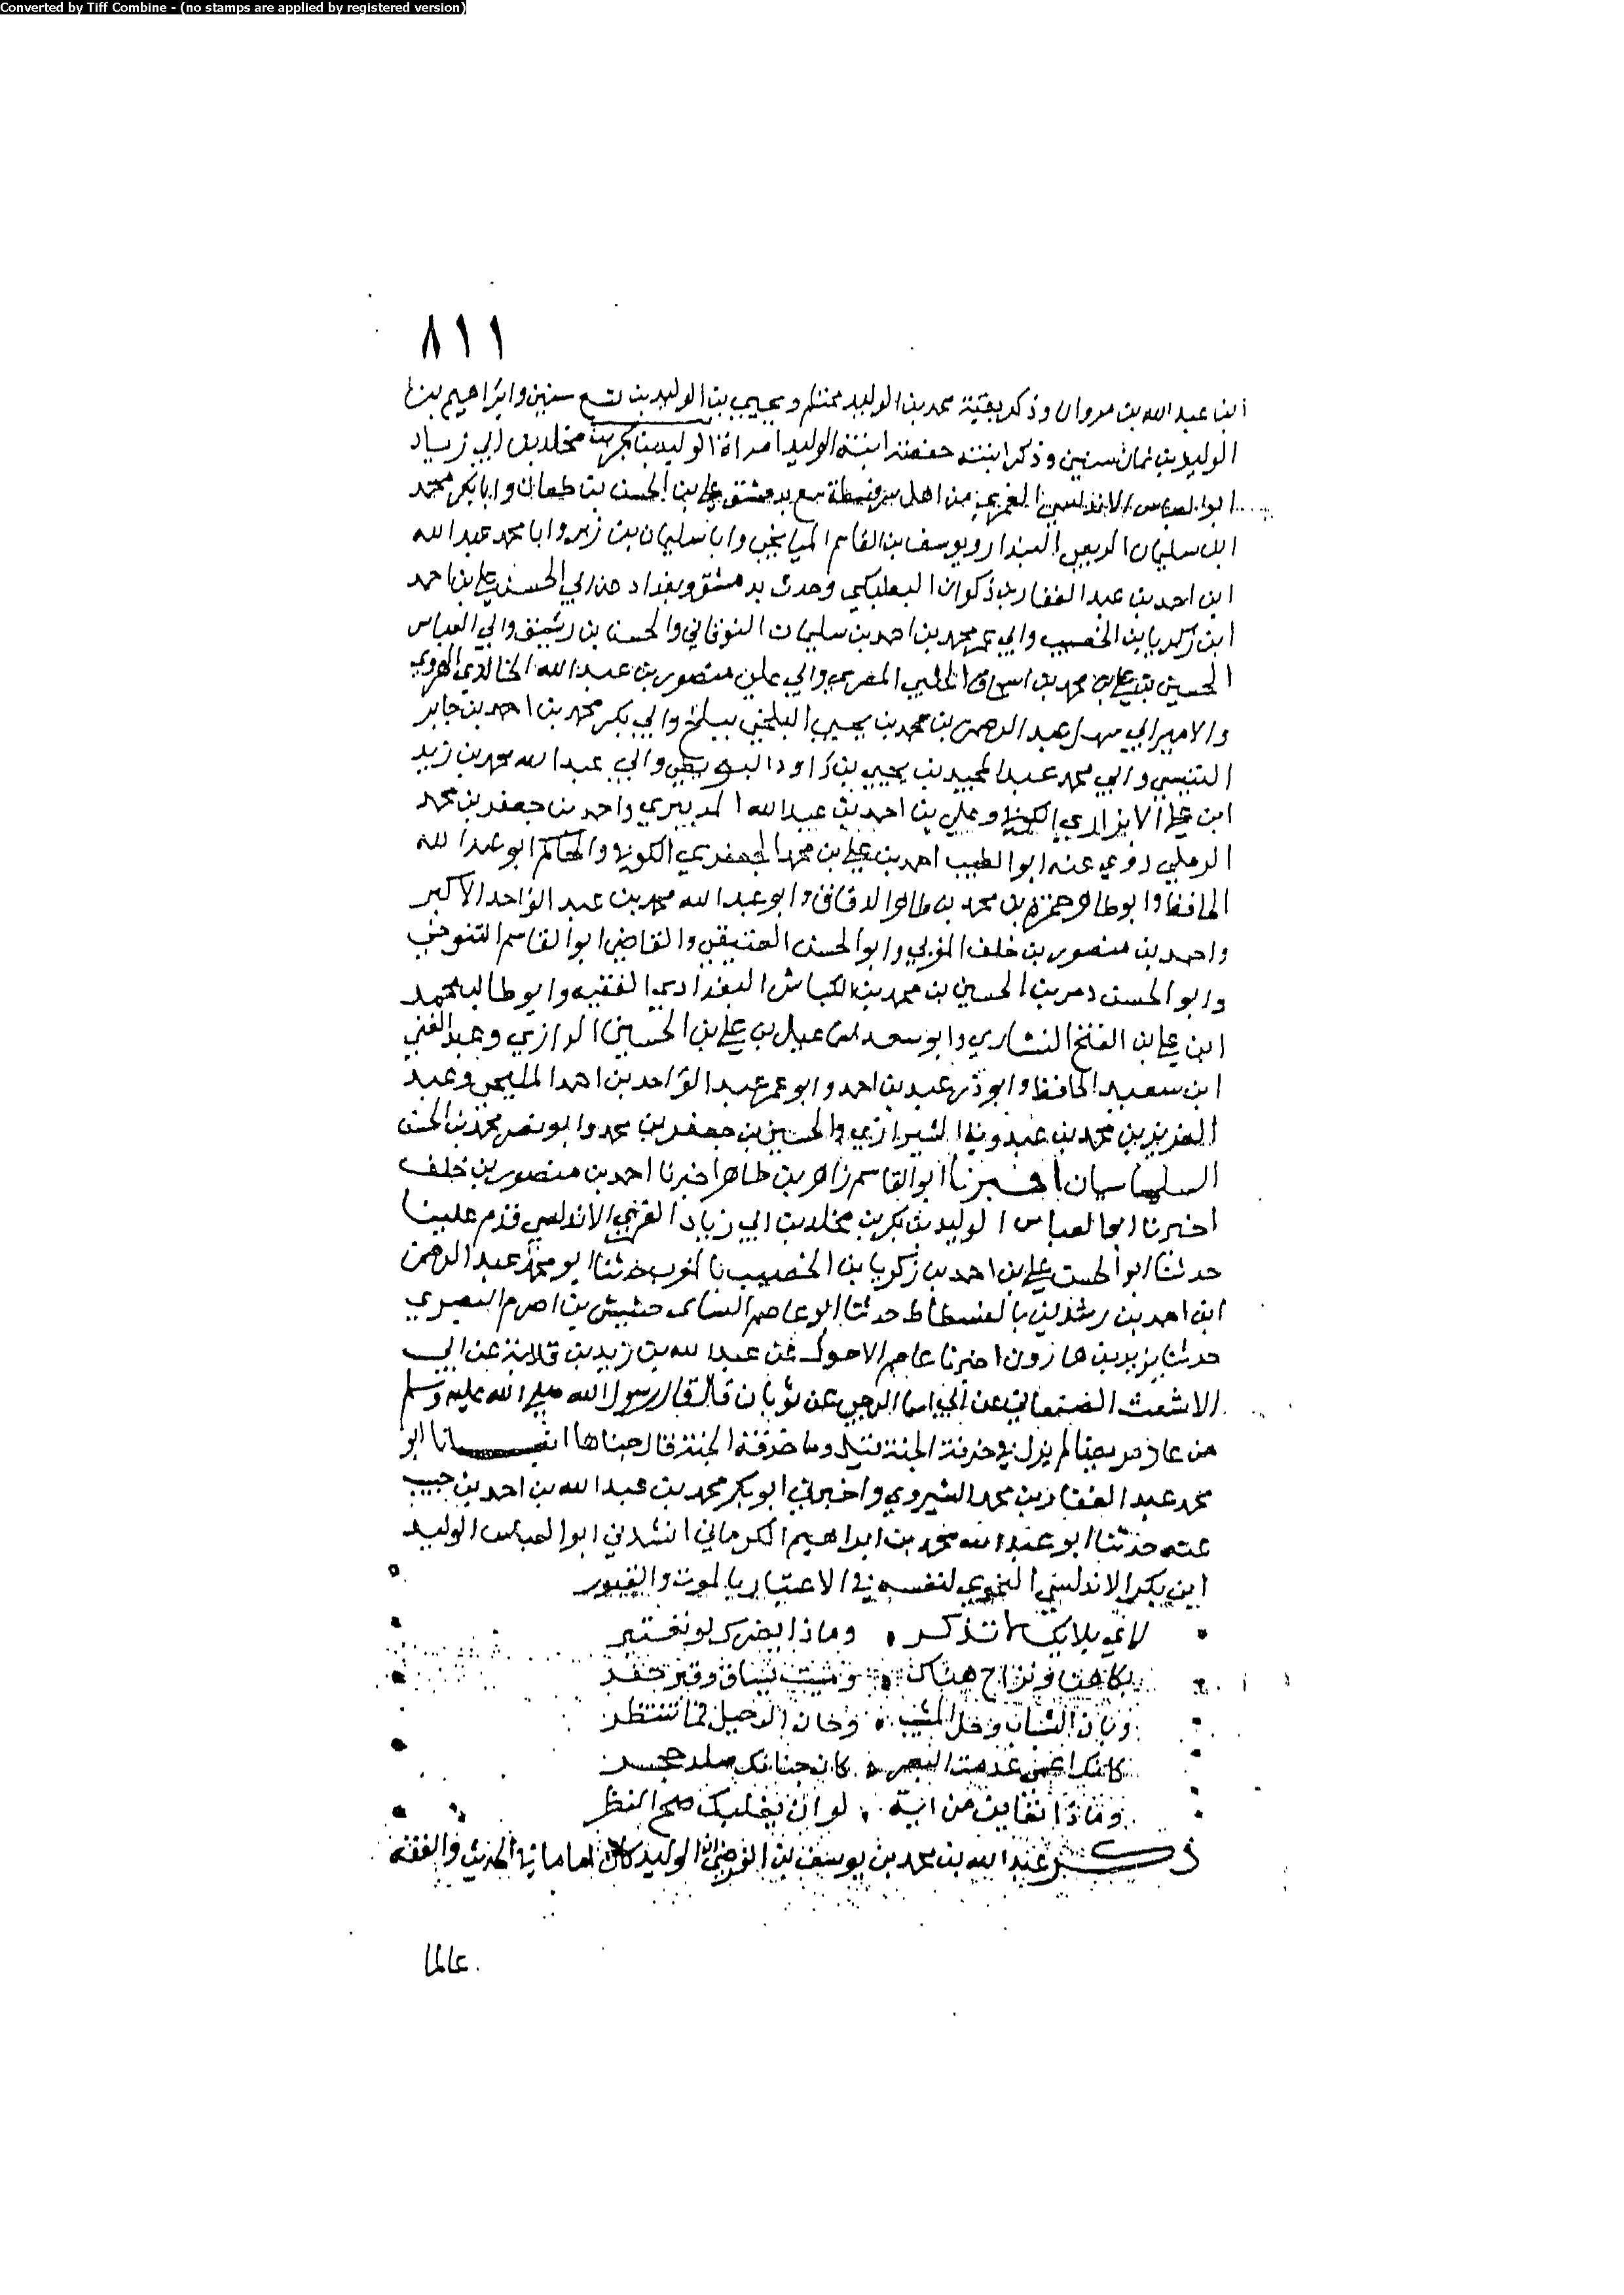 Converted by Tiff Combine - (no stamps are applied by registered version)
٨١١
ابن عبد الله بن مروان وذكر بقية محمد بن الوليد محتلم ويحيى بن الوليد بن تسع سنين وابراهيم بن
الوليد بن ثمان سنين وذكر ابنته حفصة ابنة الوليد امراة الوليد بن بكر بن مخلد بن ابي زياد
ابو العباس الاندلسي الغمري من اهل سرقسطة سمع بدمشق علي بن الحسن بن طعان وابا بكر محمد
ابن سليمان الربعي البندار ويوسف بن القاسم الميانجي وابا سليمان بن زبر وابا محمد عبد الله
ابن احمد بن عبد الغفار بن ذكوان البعلبكي وحدث بدمشق وبغداد عن ابي الحسن علي بن احمد
ابن زكريا بن الخصيب وابي عمر محمد بن احمد بن سليمان النوقاني والحسن بن رشيق وابي العباس
الحسين بن علي بن محمد بن اسحاق الحلبي المصري وابي علي منصور بن عبد الله الخالدي الهروي
والامير ابي سهل عبد الرحمن بن محمد بن يحيى البلخي ببلخ وابي بكر محمد بن احمد بن جابر
التنيسي وابي محمد عبد المجيد بن يحيى بن داود البويطي وابي عبد الله محمد بن زيد
ابن علي الابزاري الكوفي وعلي بن احمد بن عبد الله واحمد بن جعفر بن محمد
الرملي روى عنه ابو الطيب احمد بن علي بن محمد الجعفري الكوفي والحاكم ابو عبد الله
الحافظ وابو طاهر حمزة بن محمد بن طاهر الدقاق وابو عبد الله محمد بن عبد الواحد الاكبر
واحمد بن منصور بن خلف المغربي وابو الحسن العتيقي والقاضي ابو القاسم التنوخي
وابو الحسن بن الحسين بن محمد بن الكباش البغدادي الفقيه وابو طالب محمد
ابن علي بن الفتح العشاري وابو سعد اسماعيل بن علي بن الحسين الرازي وعبد الغني
ابن سعيد الحافظ وابو ذر عبد بن احمد وابو عمر عبد الواحد بن احمد المليحي وعبد
العزيز بن محمد بن عبدويه الشيرازي والحسين بن جعفر بن محمد وابو نصر محمد بن الحسن
السلماسيان اخبرنا ابو القاسم زاهر بن طاهر اخبرنا احمد بن منصور بن خلف
اخبرنا ابو العباس الوليد بن بكر بن مخلد بن ابي زياد الاندلسي قدم علينا
حدثنا ابو الحسن علي بن احمد بن زكريا بن الخصيب حدثنا ابو محمد عبد الرحمن
ابن احمد بن رشدين بالفسطاط حدثنا ابو عاصم حشيش بن اصرم البصري
حدثنا يزيد بن هارون اخبرنا عاصم الاحول عن عبد الله بن زيد بن قلابة عن ابي
الاشعث الصنعاني عن ابي اسما الرحبي عن ثوبان قال قال رسول الله صلى الله عليه وسلم
من عاد مريضا لم يزل في خرفة الجنة قيل وما خرفة الجنة قال جناها انبانا ابو
محمد عبد الغفار بن محمد الشيروي واخبرني ابو بكر محمد بن عبد الله بن احمد بن حبيب
عنه حدثنا ابو عبد الله محمد بن ابراهيم الكرماني انشدني ابو العباس الوليد
ابن بكر الاندلسي النحوي لنفسه في الاعتبار بالموت والقبور
لاي بلايك لا تذكر وماذا يضرك لو تعتبر
بكا هنا ونواح هناك وميت يساق وقبر حفر
وبان الشباب وحل المشيب وحان الرحيل فما تنتظر
كانك اعمى عدمت البصر كان جنانك صلد حجر
وماذا تعاين من اية لو ان بقلبك صح النظر
ذكر عبد الله بن محمد بن يوسف بن الفرضي ان الوليد كان اماما في الحديث والفقه
عالما